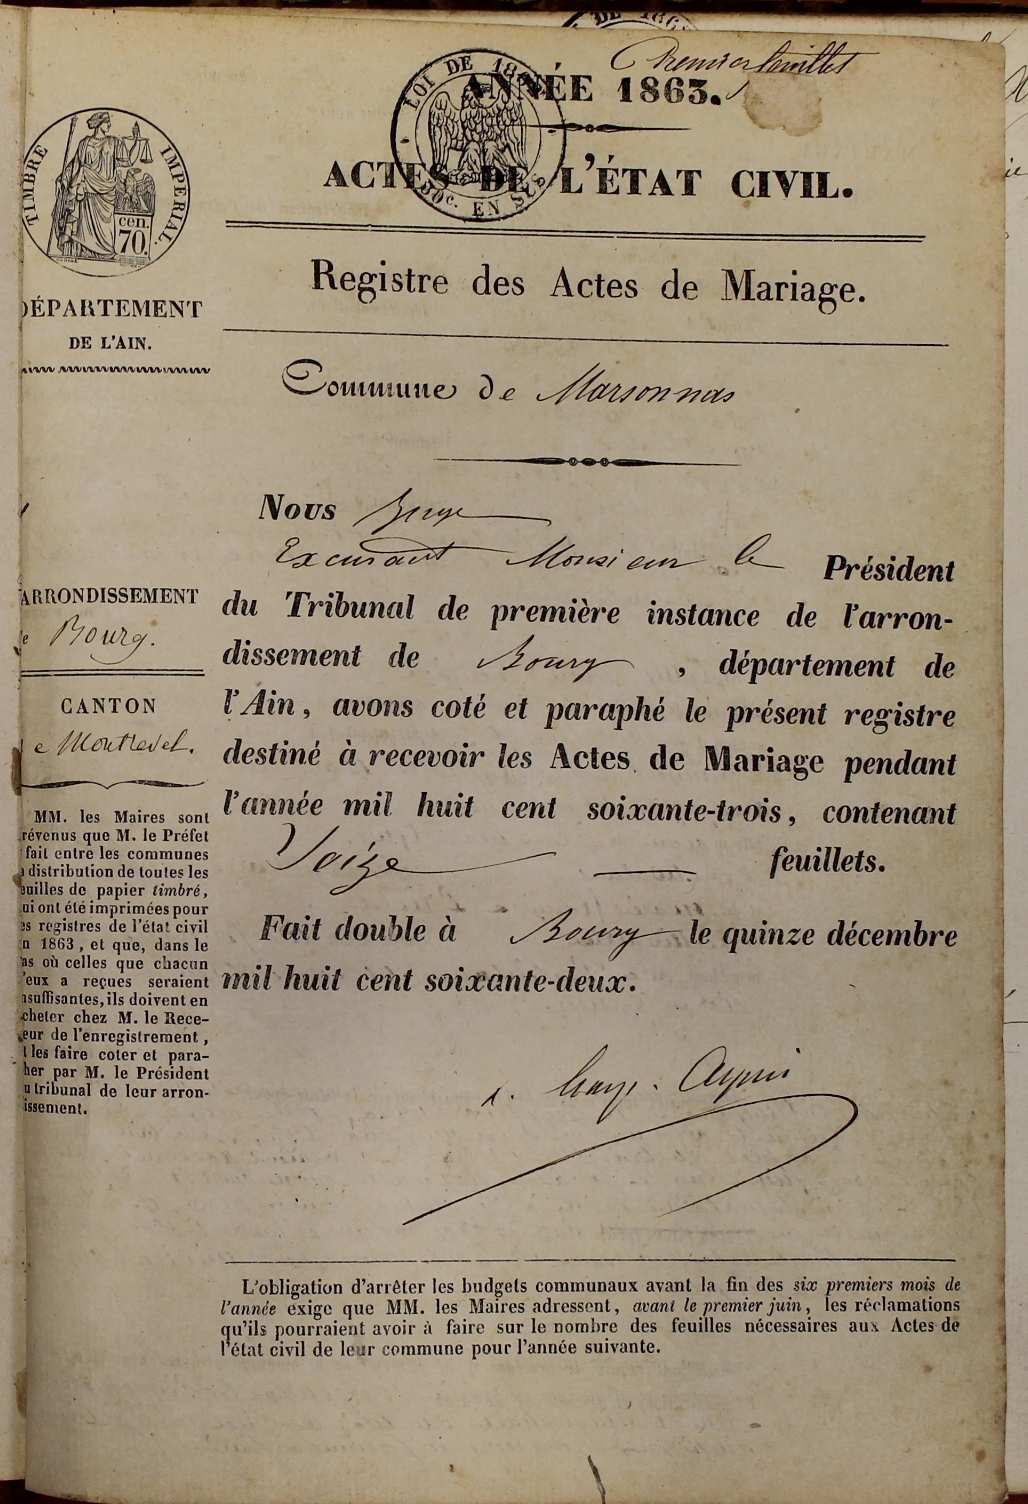 Premier feuillet
LOI DE 18
ANNÉE 1863.
ACTES DE L'ÉTAT CIVIL.
EN SUS
TIMBRE IMPÉRIAL.
cen.
70.
DÉPARTEMENT
DE L'AIN.
Registre des Actes de Mariage.
Commune de Marsonnas
ARRONDISSEMENT
e Bourg.
CANTON
e Montrevel.
MM. les Maires sont
révenus que M. le Préfet
fait entre les communes
distribution de toutes les
euilles de papier timbré,
ui ont été imprimées pour
es registres de l'état civil
n 1863, et que, dans le
as où celles que chacun
'eux a reçues seraient
nsuffisantes, ils doivent en
cheter chez M. le Rece-
eur de l'enregistrement,
t les faire coter et para-
her par M. le Président
u tribunal de leur arron-
issement.
Nous Juge
Excusant Monsieur le Président
du Tribunal de première instance de l'arron-
dissement de Bourg, département de
l'Ain, avons coté et paraphé le présent registre
destiné à recevoir les Actes de Mariage pendant
l'année mil huit cent soixante-trois, contenant
Seize feuillets.
Fait double à Bourg le quinze décembre
mil huit cent soixante-deux.
L'obligation d'arrêter les budgets communaux avant la fin des six premiers mois de
l'année exige que MM. les Maires adressent, avant le premier juin, les réclamations
qu'ils pourraient avoir à faire sur le nombre des feuilles nécessaires aux Actes de
l'état civil de leur commune pour l'année suivante.